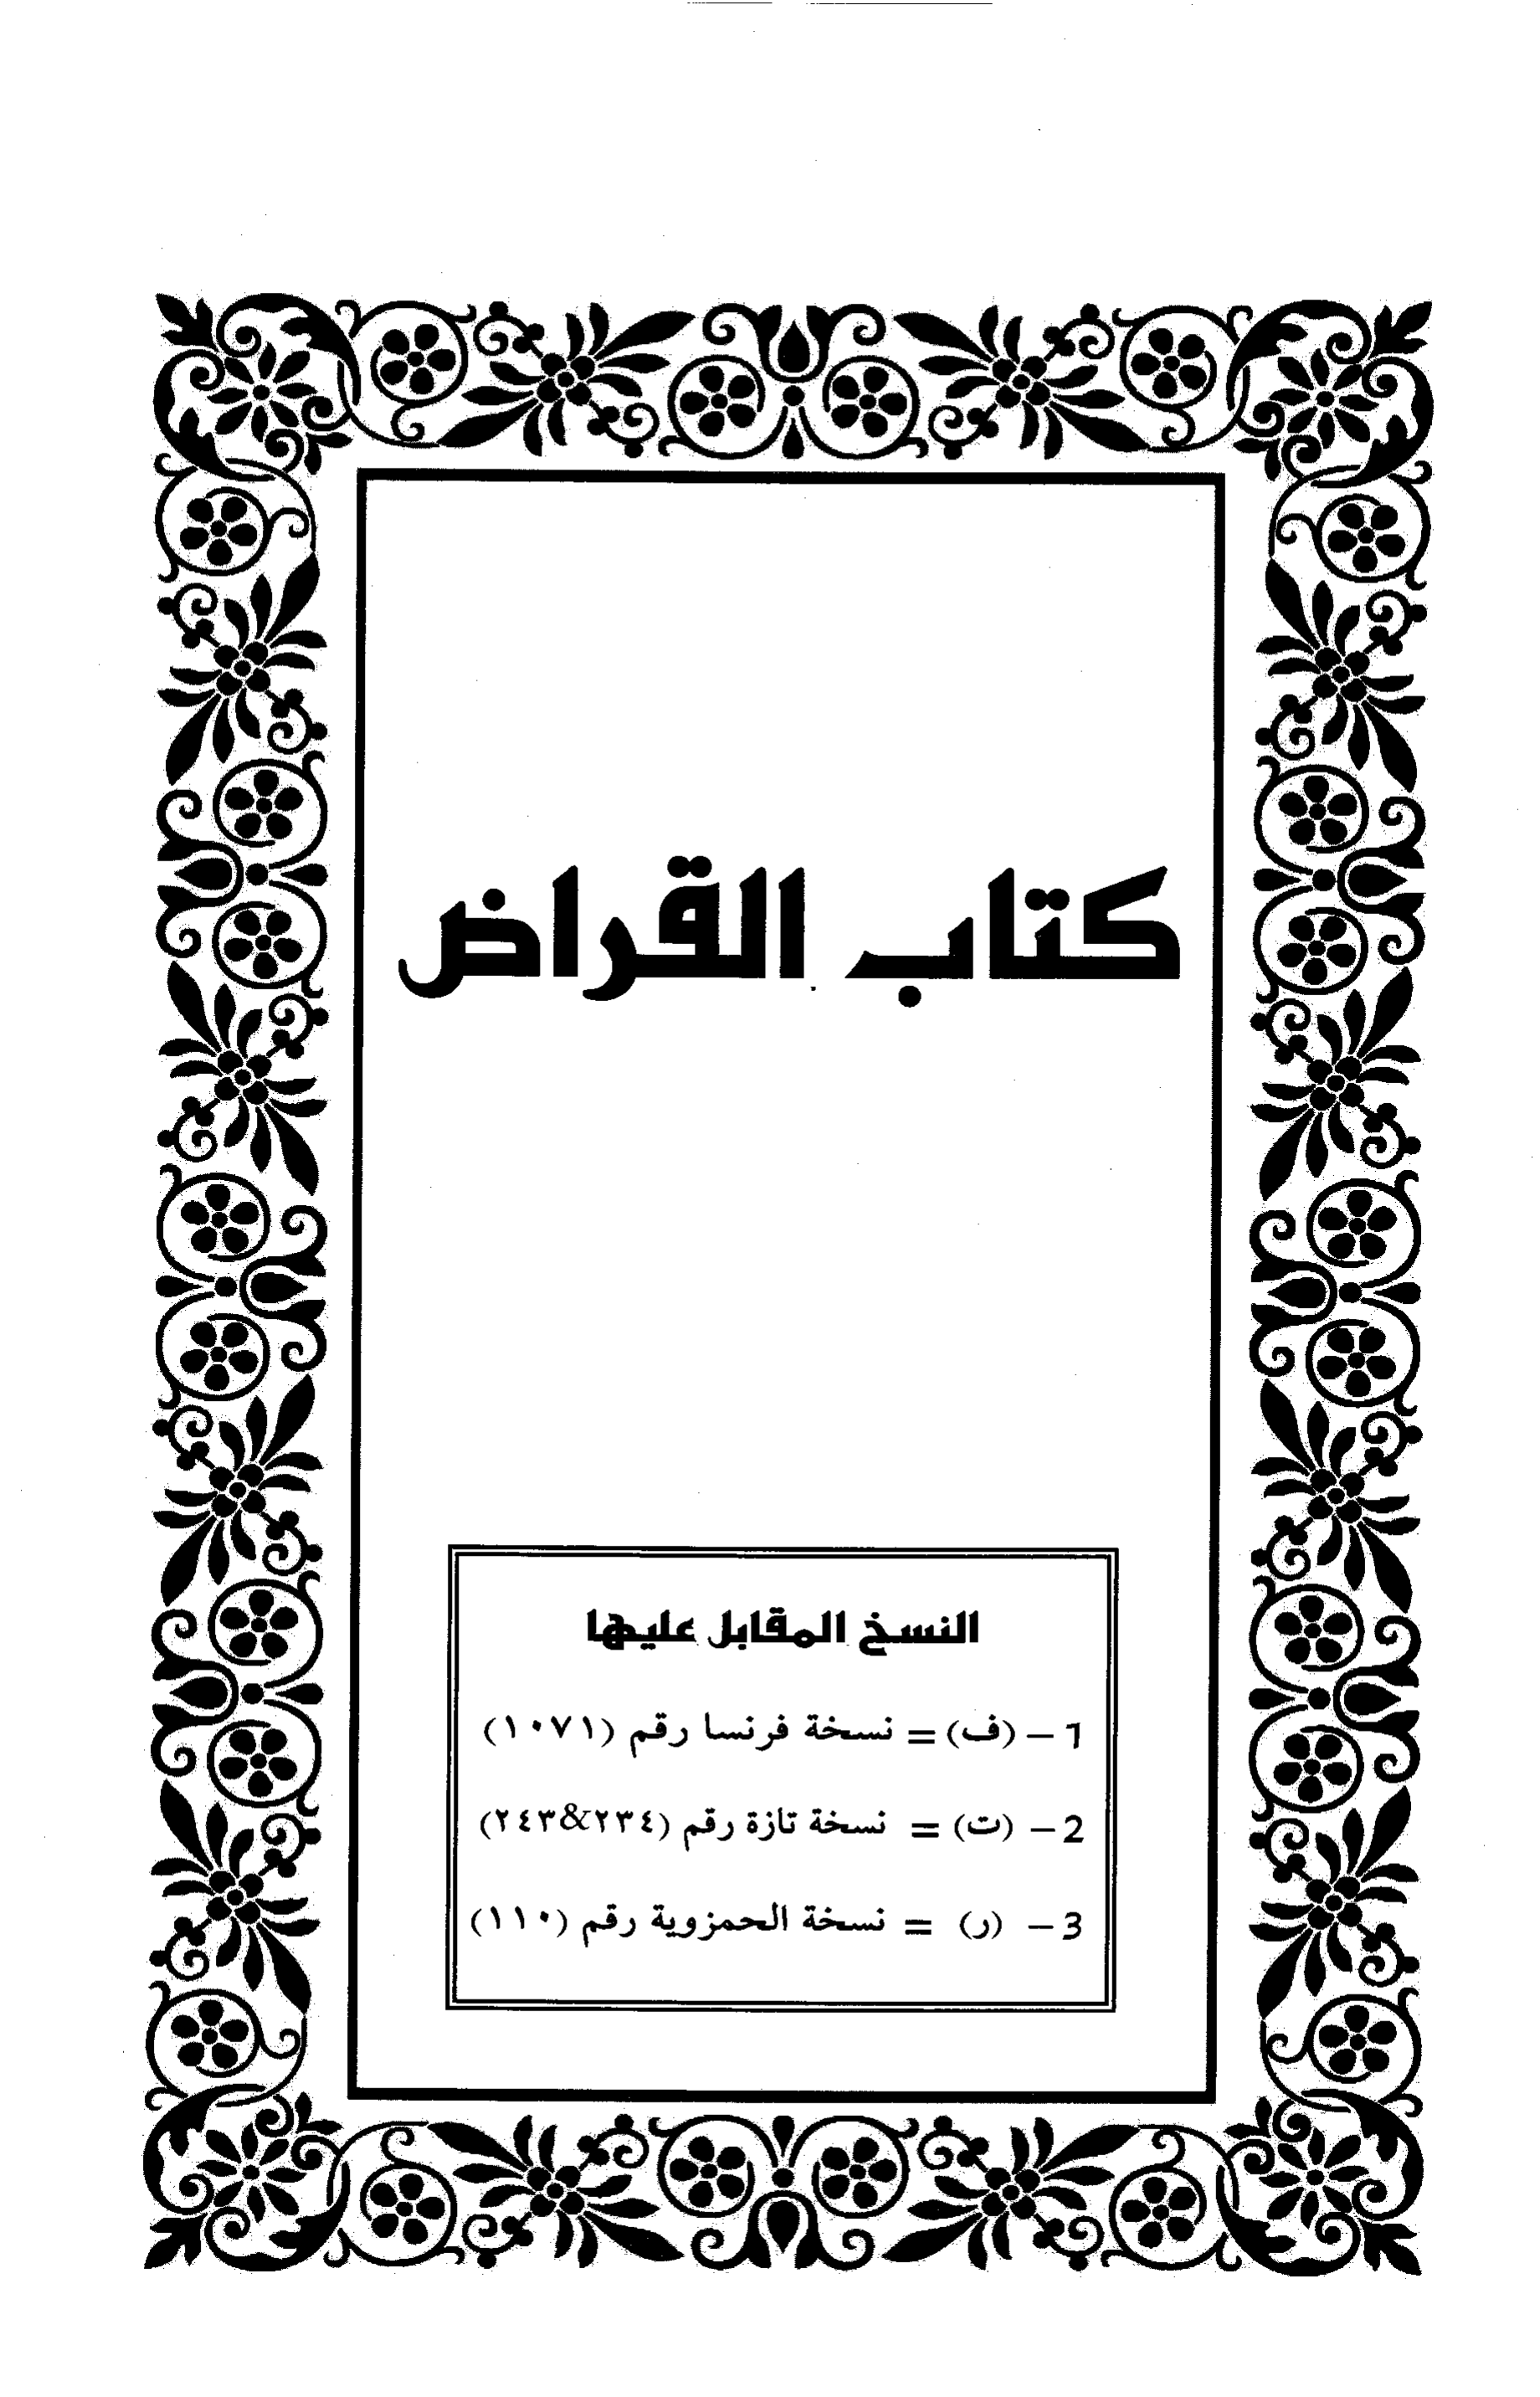 كتاب القراض
النسخ المقابل عليها
1 - (ف) = نسخة فرنسا رقم (١٠٧١)
2 - (ت) = نسخة تازة رقم (٢٣٤&٢٤٣)
3 - (ر) = نسخة الحمزوية رقم (١١٠)